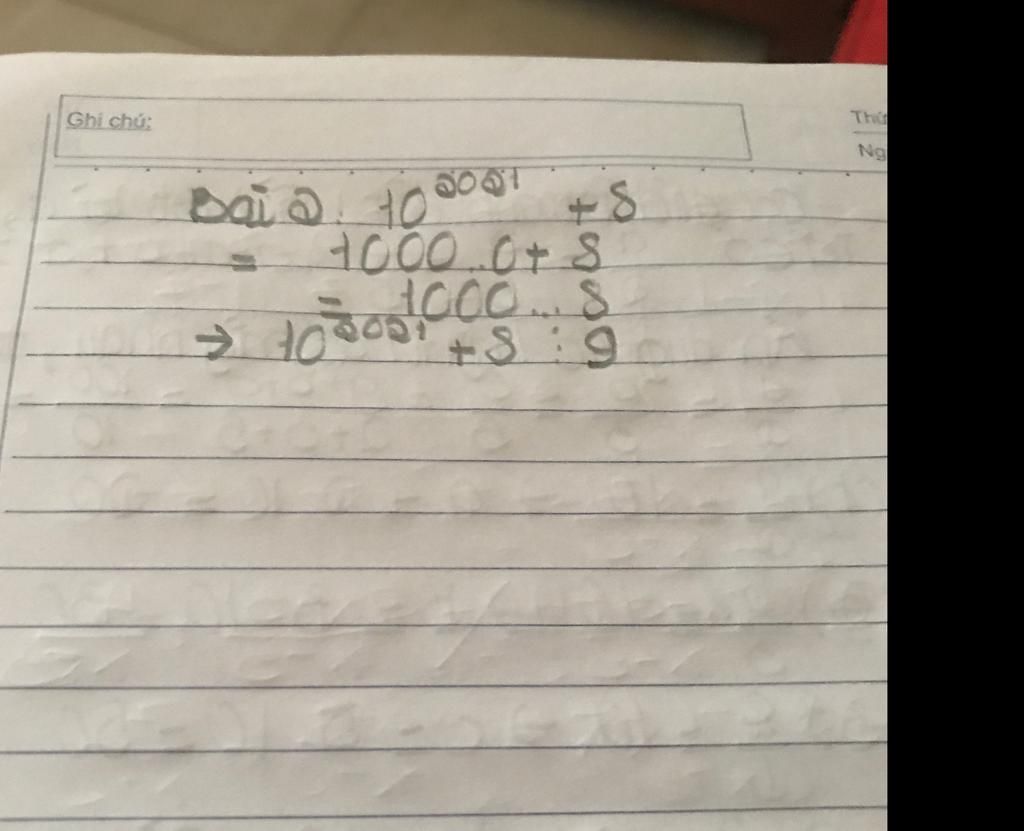 Ghi chú:
Thứ
Ng
Bài 2. 10²⁰²¹ + 8
= 1000...0 + 8
= 1000...8
→ 10²⁰²¹ + 8 ⋮ 9